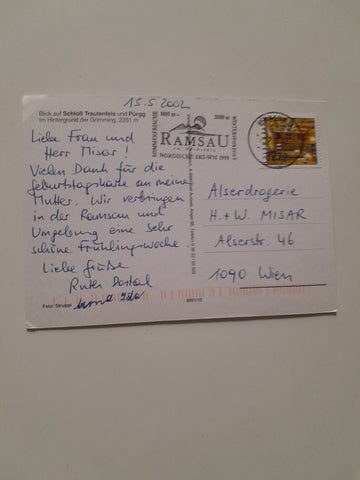 15.5.2002
Blick auf Schloß Trautenfels und Pürgg
im Hintergrund der Grimming, 2351 m
Liebe Frau und
Herr Misar!
Vielen Dank für die
Geburtstagskarte an meine
Mutter. Wir verbringen
in der Ramsau und
Umgebung eine sehr
schöne Frühlingswoche
Liebe Grüße
Ruth
Foto: Strupp
RAMSAU
AM DACHSTEIN
NORDISCHE SKI-WM 1999
Alserdrogerie
H.+W. MISAR
Alserstr. 46
1090 Wien